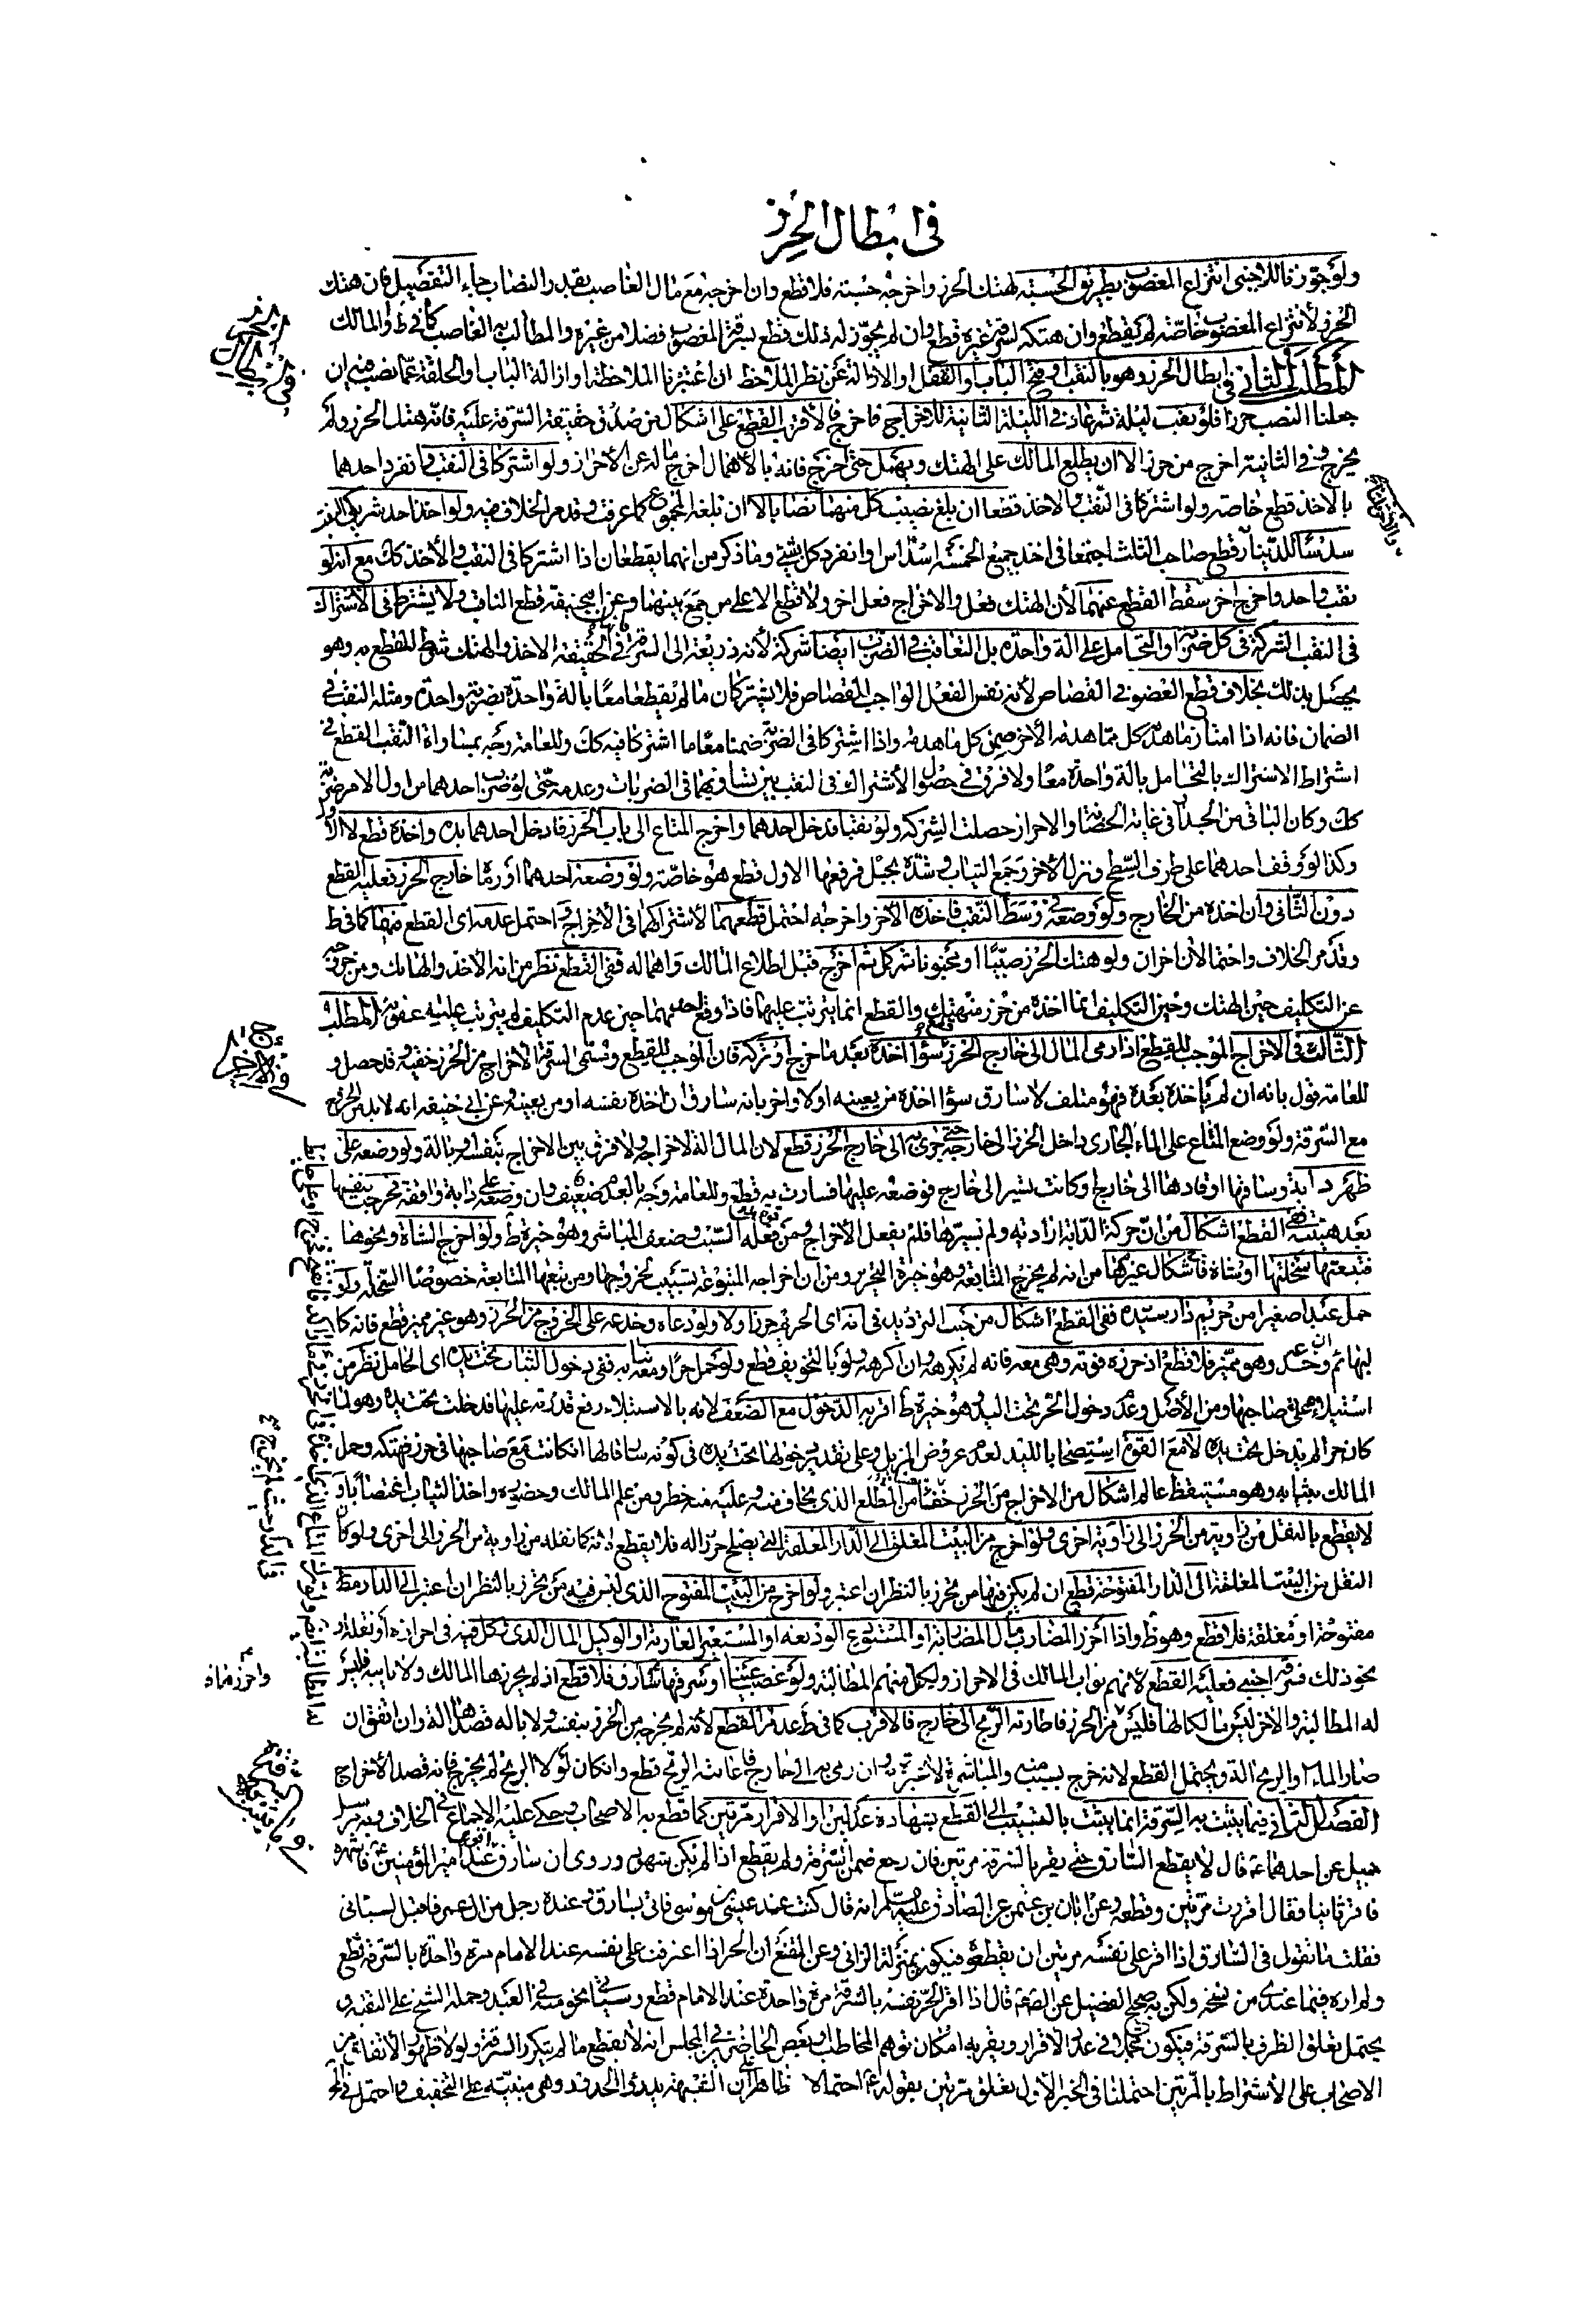 في ابطال الحرز
ولو جوّزنا للاجنبي انتزاع المغصوب بطريق الحسبة فهتك الحرز واخرجه حسبته فلا قطع وان اخرجه مع مال الغاصب بقدر النصاب جاء التفصيل فان هتك
الحرز لانتزاع المغصوب خاصّة لم يقطع وان هتكه لسرقة غيره قطع وان لم يجوّز له ذلك قطع بسرقة المغصوب فضلا من غيره والمطالب به الغاصب كما في ط والمالك
المطلب الثاني في ابطال الحرز وهو بالنقب او فتح الباب او القفل او الازالة عن نظر الملاحظ ان اعتبرنا الملاحظة او ازالة الباب والحلقة عمّا نصب فيه ان
جعلنا النصب حرزا فلو نقب ليلة ثم عاد في الليلة الثانية للاخراج فاخرج فالاقرب القطع على اشكال من صدق حقيقة السرقة عليه فانه هتك الحرز ولم
يخرج في الثانية اخرج من حرز الا ان يطلع المالك على الهتك ويهمل حتى اخرج فانه بالاهمال اخرج ماله عن الاحراز ولو اشتركا في النقب وانفرد احدهما
بالاخذ قطع خاصة ولو اشتركا في النقب والاخذ قطعا ان بلغ نصيب كل منهما نصابا والا ان بلغه المجموع كما عرفت وقد مر الخلاف فيه ولو اخذ احد شريكي النقب
سدسا للدينار قطع صاحب الثلث اجتمعا في اخذ جميع الخمسة اسداس او انفرد كل بشيء وما ذكر من انهما يقطعان اذا اشتركا في النقب والاخذ كك مع انه لو
نقب واحد واخرج اخر سقط القطع عنهما لان الهتك فعل والاخراج فعل اخر ولا قطع الا على من جمع بينهما وعن ابي حنيفة قطع الناقب ولا يشترط في الاشتراك
في النقب الشركة في كل ضربة او التحامل على الة واحدة بل التعاقب في الضرب ايضا شركة لانه ذريعة الى السرقة وانها في الحقيقة الاخذ والهتك شرط للقطع به وهو
يحصل بذلك بخلاف قطع العضو في القصاص لانه نفس الفعل الواجب القصاص فلا يشتركان ما لم يقطعا معًا بالة واحدة بضربة واحدة ومثله النقب في
الضمان فانه اذا امتاز ما هدم كل مما هدمه الاخر ضمن كل ما هدمه واذا اشتركا في الضربة ضمنا معًا ما اشتركا فيه كك وللعامة وجه بمساواة النقب القطع في
اشتراط الاشتراك بالتحامل بالة واحدة معًا ولا فرق في حصول الاشتراك في النقب بين تساويهما في الضربات وعدمه حتى لو ضرب احدهما من اول الامر ضربة
كك وكان الباقي من الجدار في غاية الحصانة والاحراز حصلت الشركة ولو نقبا فدخل احدهما واخرج المتاع الى باب الحرز فادخل احدهما يده واخذه قطع لا الاول
وكذا لو وقف احدهما على طرف السطح ونزل الاخر وجمع الثياب وشده بحبل فرفعها الاول قطع هو خاصّة ولو وضعه احدهما او رماه خارج الحرز فعليه القطع
دون الثاني وان اخذه من الخارج ولو وضعه في وسط النقب فاخذه الاخر واخرجه احتمل قطعهما لاشتراكهما في الاخراج واحتمل عدمه اى القطع فيهما كما في ط
وقد مر الخلاف واحتمالان اخران ولو هتك الحرز صبيّا او مجنونا ثم كمل ثم اخرج قبل اطلاع المالك واهماله ففي القطع نظر من انه الاخذ والهاتك ومن خروجه
عن التكليف حين الهتك وحين التكليف انما اخذه من حرز منهتك والقطع انما يترتب عليهما فاذا وقع احدهما حين عدم التكليف لم يترتب عليه عقوبة المطلب
الثالث في الاخراج الموجب للقطع اذا رمى المال الى خارج الحرز قطع سواء اخذه بعد ما خرج او تركه فان الموجب للقطع ويسمى السرقة الاخراج من الحرز خفية وقد حصل و
للعامة قول بانه ان لم ياخذه بعده فهو متلف لا سارق سواء اخذه من يعينه او لا واخر بانه سارق ان اخذه بنفسه او من يعينه وعن ابي حنيفة انه لا بد من الخروج
مع السرقة ولو وضع المتاع على الماء الجاري داخل الحرز الى خارجه حتى جرى به الى خارج الحرز قطع لان الماء الة لاخراجه ولا فرق بين الاخراج بنفسه او بالة ولو وضعه على
ظهر دابة وساقها او قادها الى خارج او كانت تسير الى خارج فوضعه عليها فسارت به قطع وللعامة وجه بالعدم ضعيف وان وضعه على دابة واقفة فخرجت بنفسها
بعد هنيئة ففي القطع اشكال من ان حركة الدابة ارادية ولم يسيّرها فلم يفعل الاخراج ومن فعله السبب وضعف المباشر وهو خيرة ط ولو اخرج الشاة ونحوها
فتبعتها سخلتها او شاة فاشكال غيرهما من انه لم يخرج المتابعة وهو خيرة التحرير ومن ان اخراجه المتبوعة تسبيب لخروجها ومن تبعها المتابعة خصوصًا السخلة ولو
حمل عبدا صغيرا من حريم دار سيده ففي القطع اشكال من حيث الترديد في انه اى الحريم حرز اولا ولو دعاه وخدعه على الخروج من الحرز وهو غير مميز قطع فانه كا
لبهائم وان خدعه وهو مميّز فلا قطع اذ حرزه قوته وهي معه فانه لم يكرهه وان اكرهه ولو بالتخويف قطع ولو حمل حرّا ومعه ثيابه ففي دخول الثياب تحت يده اى الحامل نظر من
استيلائه على صاحبها ومن الاصل وعدم دخول الحر تحت اليد هو خيرة ط اقربه الدخول مع الضعف لانه بالاستيلاء رفع قدرته عليها فدخلت تحت يده وهو لما
كان حرا لم يدخل تحت يده لا مع القوة استصحابا لليد لعدم عروض المزيل وعلى تقدير دخولها تحت يده في كونه سارقا لها انكانت مع صاحبها في حرز فهتكه وحمل
المالك بثيابه وهو مستيقظ عالم اشكال من الاخراج من الحرز خفية من المطّلع الذي يخاف منه وعليه منه خطر ومن علم المالك وحضوره واخذ الثياب اغتصابًا و
لا يقطع بالنقل من زاوية من الحرز الى زاوية اخرى ولو اخرج من البيت المغلق الى الدار المغلقة التي يصلح حرزا له فلا يقطع لانه كما نقله من زاوية من الحرز الى اخرى ولو كان
النقل من البيت المغلقة الى الدار المفتوحة قطع ان لم يكن فيها من يحرز بالنظر ان اعتبر ولو اخرج من البيت المفتوح الذي ليس فيه من يحرز بالنظر ان اعتبر الى الدار مط
مفتوحة او مغلقة فلا قطع وهو ظ واذا احرز المضارب مال المضاربة او المستودع الوديعة او المستعير العارية او الوكيل المال الذي وكل فيه في احرازه او نقله او
نحو ذلك فسرقه اجنبي فعليه القطع لانهم نواب المالك في الاحراز ولكل منهم المطالبة ولو غصب عينا او سرقها سارق فلا قطع اذ لم يحرزها المالك ولا نايبه فليس
له المطالبة والاخر ليس مالكا لها فليس من الحرز فاطارته الريح الى خارج فالاقرب كما في ط عدم القطع لانه لم يخرجه من الحرز بنفسه ولا بالة قصدها الة وان اتفق ان
صار الماء او الريح الة ويحتمل القطع لانه خرج بسبب منه والمباشرة لا خبرة به وان رمى به الى خارج فاعانته الريح قطع وانكان لولا الريح لم يخرج فانه قصد الاخراج
الفصل الثاني فيما يثبت به السرقة انما يثبت بالنسبة الى القطع بشهادة عدلين او الاقرار مرتين كما قطع به الاصحاب وحكى عليه الاجماع في الخلاف وبه مرسل
جميل عن احدهما ع قال لا يقطع السارق حتى يقر بالسرقة مرتين فان رجع ضمن السرقة ولم يقطع اذا لم يكن شهود وروى ان سارقا اقر عند امير المؤمنين ع فانتهره
فاقر ثانيا فقال اقررت مرتين وقطعه وعن ابان بن عثمن عن الصادق عليه السلام انه قال كنت عند عيسى بن موسى فاتي بسارق وعنده رجل من ال عمر فاقبل يسألني
فقلت ما تقول في السارق اذا اقر على نفسه مرتين ان يقطع فيكون بمنزلة الزاني وعن المقنع ان الحر اذا اعترف على نفسه عند الامام مرة واحدة بالسرقة قطع
ولم اره فيما عندي من نسخه ولكن به صحيح الفضيل عن الصّ ع قال اذا اقر الحر على نفسه بالسرقة مرة واحدة عند الامام قطع وسيأتي نحو منه في العبد وحمله الشيخ على التقية و
يحتمل تعلق الظرف بالسرقة فيكون مجملا في عدد الاقرار ويقربه امكان توهم المخاطب او بعض الحاضرين في المجلس انه لا يقطع ما لم يتكرر السرقة ولولا ظهور الاتفاق من
الاصحاب على الاشتراط بالمرتين احتملنا في الخبر الاول تعلق مرتين بقوله ع احتمالا ظاهرا لان الشبهة يدرؤ الحدود وهي مبنية على التخفيف واحتمل في
في ابطال الحرز
في الاخراج
واحرز ماله